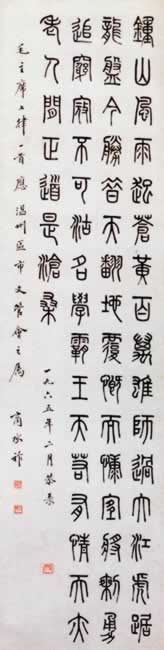 鍾山風雨起蒼黃百萬雄師過大江虎踞
龍盤今勝昔天翻地覆慨而慷宜將剩勇
追窮寇不可沽名學霸王天若有情天亦
老人間正道是滄桑
一九六五年二月恭录
毛主席七律一首應 温州區市文管會之屬 商承祚